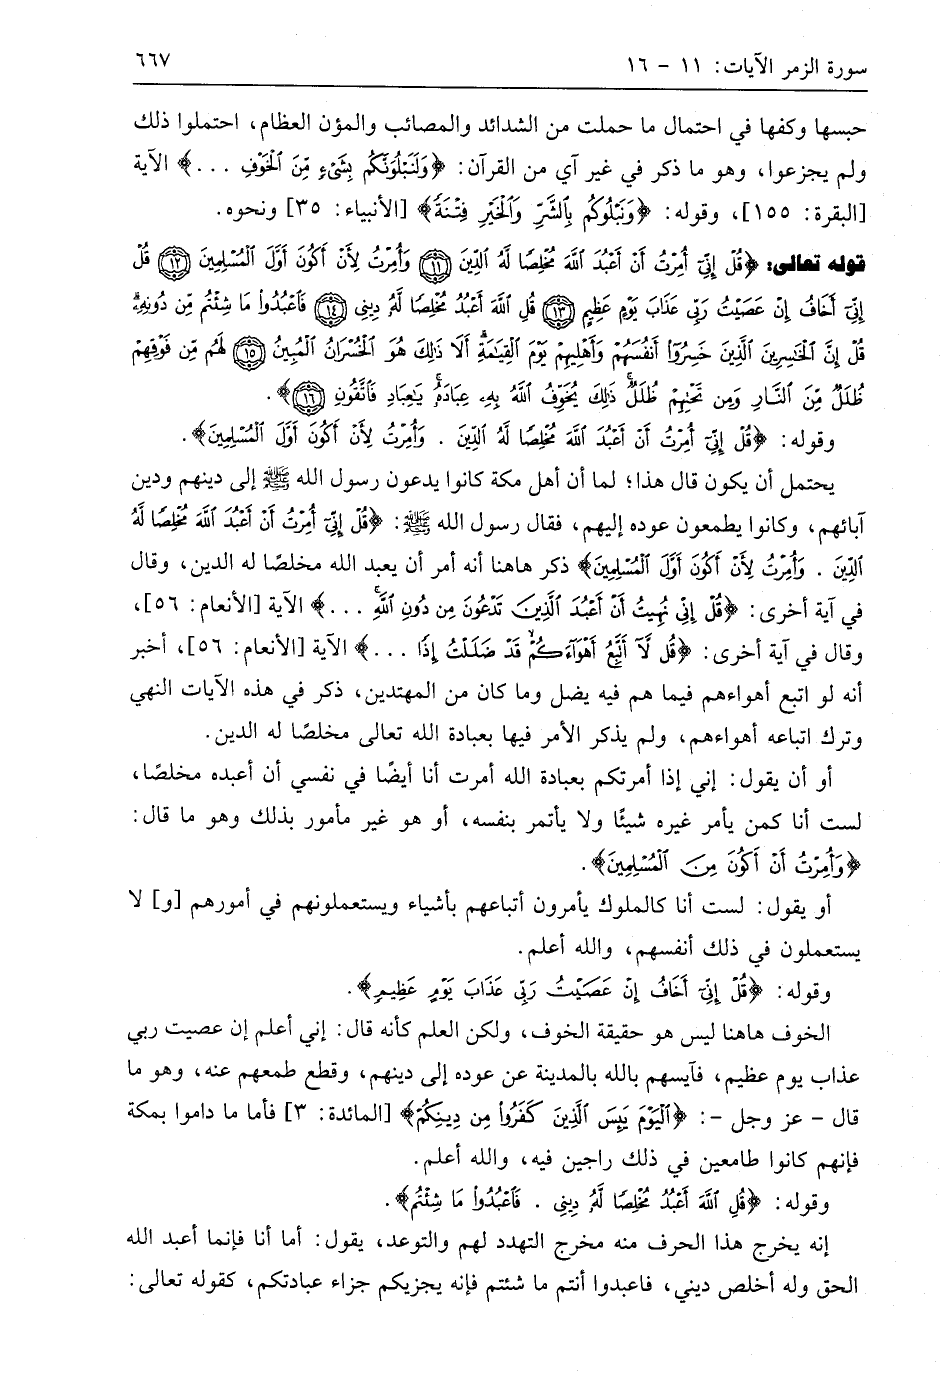 سورة الزمر الآيات: ١١ - ١٦ ٦٦٧
حبسها وكفها في احتمال ما حملت من الشدائد والمصائب والمؤن العظام، احتملوا ذلك
ولم يجزعوا، وهو ما ذكر في غير آي من القرآن: ﴿وَلَنَبْلُوَنَّكُم بِشَىْءٍ مِّنَ ٱلْخَوْفِ ...﴾ الآية
[البقرة: ١٥٥]، وقوله: ﴿وَنَبْلُوكُم بِٱلشَّرِّ وَٱلْخَيْرِ فِتْنَةً﴾ [الأنبياء: ٣٥] ونحوه.
قوله تعالى: ﴿قُلْ إِنِّىٓ أُمِرْتُ أَنْ أَعْبُدَ ٱللَّهَ مُخْلِصًا لَّهُ ٱلدِّينَ ١١ وَأُمِرْتُ لِأَنْ أَكُونَ أَوَّلَ ٱلْمُسْلِمِينَ ١٢ قُلْ
إِنِّىٓ أَخَافُ إِنْ عَصَيْتُ رَبِّى عَذَابَ يَوْمٍ عَظِيمٍ ١٣ قُلِ ٱللَّهَ أَعْبُدُ مُخْلِصًا لَّهُۥ دِينِى ١٤ فَٱعْبُدُوا۟ مَا شِئْتُم مِّن دُونِهِۦ
قُلْ إِنَّ ٱلْخَـٰسِرِينَ ٱلَّذِينَ خَسِرُوٓا۟ أَنفُسَهُمْ وَأَهْلِيهِمْ يَوْمَ ٱلْقِيَـٰمَةِ أَلَا ذَٰلِكَ هُوَ ٱلْخُسْرَانُ ٱلْمُبِينُ ١٥ لَهُم مِّن فَوْقِهِمْ
ظُلَلٌ مِّنَ ٱلنَّارِ وَمِن تَحْتِهِمْ ظُلَلٌ ذَٰلِكَ يُخَوِّفُ ٱللَّهُ بِهِۦ عِبَادَهُۥ يَـٰعِبَادِ فَٱتَّقُونِ ١٦﴾.
وقوله: ﴿قُلْ إِنِّىٓ أُمِرْتُ أَنْ أَعْبُدَ ٱللَّهَ مُخْلِصًا لَّهُ ٱلدِّينَ . وَأُمِرْتُ لِأَنْ أَكُونَ أَوَّلَ ٱلْمُسْلِمِينَ﴾.
يحتمل أن يكون قال هذا؛ لما أن أهل مكة كانوا يدعون رسول الله ﷺ إلى دينهم ودين
آبائهم، وكانوا يطمعون عوده إليهم، فقال رسول الله ﷺ: ﴿قُلْ إِنِّىٓ أُمِرْتُ أَنْ أَعْبُدَ ٱللَّهَ مُخْلِصًا لَّهُ
ٱلدِّينَ . وَأُمِرْتُ لِأَنْ أَكُونَ أَوَّلَ ٱلْمُسْلِمِينَ﴾ ذكر هاهنا أنه أمر أن يعبد الله مخلصًا له الدين، وقال
في آية أخرى: ﴿قُلْ إِنِّى نُهِيتُ أَنْ أَعْبُدَ ٱلَّذِينَ تَدْعُونَ مِن دُونِ ٱللَّهِ ...﴾ الآية [الأنعام: ٥٦]،
وقال في آية أخرى: ﴿قُل لَّآ أَتَّبِعُ أَهْوَآءَكُمْ قَدْ ضَلَلْتُ إِذًا ...﴾ الآية [الأنعام: ٥٦]، أخبر
أنه لو اتبع أهواءهم فيما هم فيه يضل وما كان من المهتدين، ذكر في هذه الآيات النهي
وترك اتباعه أهواءهم، ولم يذكر الأمر فيها بعبادة الله تعالى مخلصًا له الدين.
أو أن يقول: إني إذا أمرتكم بعبادة الله أمرت أنا أيضًا في نفسي أن أعبده مخلصًا،
لست أنا كمن يأمر غيره شيئًا ولا يأتمر بنفسه، أو هو غير مأمور بذلك وهو ما قال:
﴿وَأُمِرْتُ أَنْ أَكُونَ مِنَ ٱلْمُسْلِمِينَ﴾.
أو يقول: لست أنا كالملوك يأمرون أتباعهم بأشياء ويستعملونهم في أمورهم [و] لا
يستعملون في ذلك أنفسهم، والله أعلم.
وقوله: ﴿قُلْ إِنِّىٓ أَخَافُ إِنْ عَصَيْتُ رَبِّى عَذَابَ يَوْمٍ عَظِيمٍ﴾.
الخوف هاهنا ليس هو حقيقة الخوف، ولكن العلم كأنه قال: إني أعلم إن عصيت ربي
عذاب يوم عظيم، فآيسهم بالله بالمدينة عن عوده إلى دينهم، وقطع طمعهم عنه، وهو ما
قال - عز وجل -: ﴿ٱلْيَوْمَ يَئِسَ ٱلَّذِينَ كَفَرُوا۟ مِن دِينِكُمْ﴾ [المائدة: ٣] فأما ما داموا بمكة
فإنهم كانوا طامعين في ذلك راجين فيه، والله أعلم.
وقوله: ﴿قُلِ ٱللَّهَ أَعْبُدُ مُخْلِصًا لَّهُۥ دِينِى . فَٱعْبُدُوا۟ مَا شِئْتُم﴾.
إنه يخرج هذا الحرف منه مخرج التهدد لهم والتوعد، يقول: أما أنا فإنما أعبد الله
الحق وله أخلص ديني، فاعبدوا أنتم ما شئتم فإنه يجزيكم جزاء عبادتكم، كقوله تعالى: